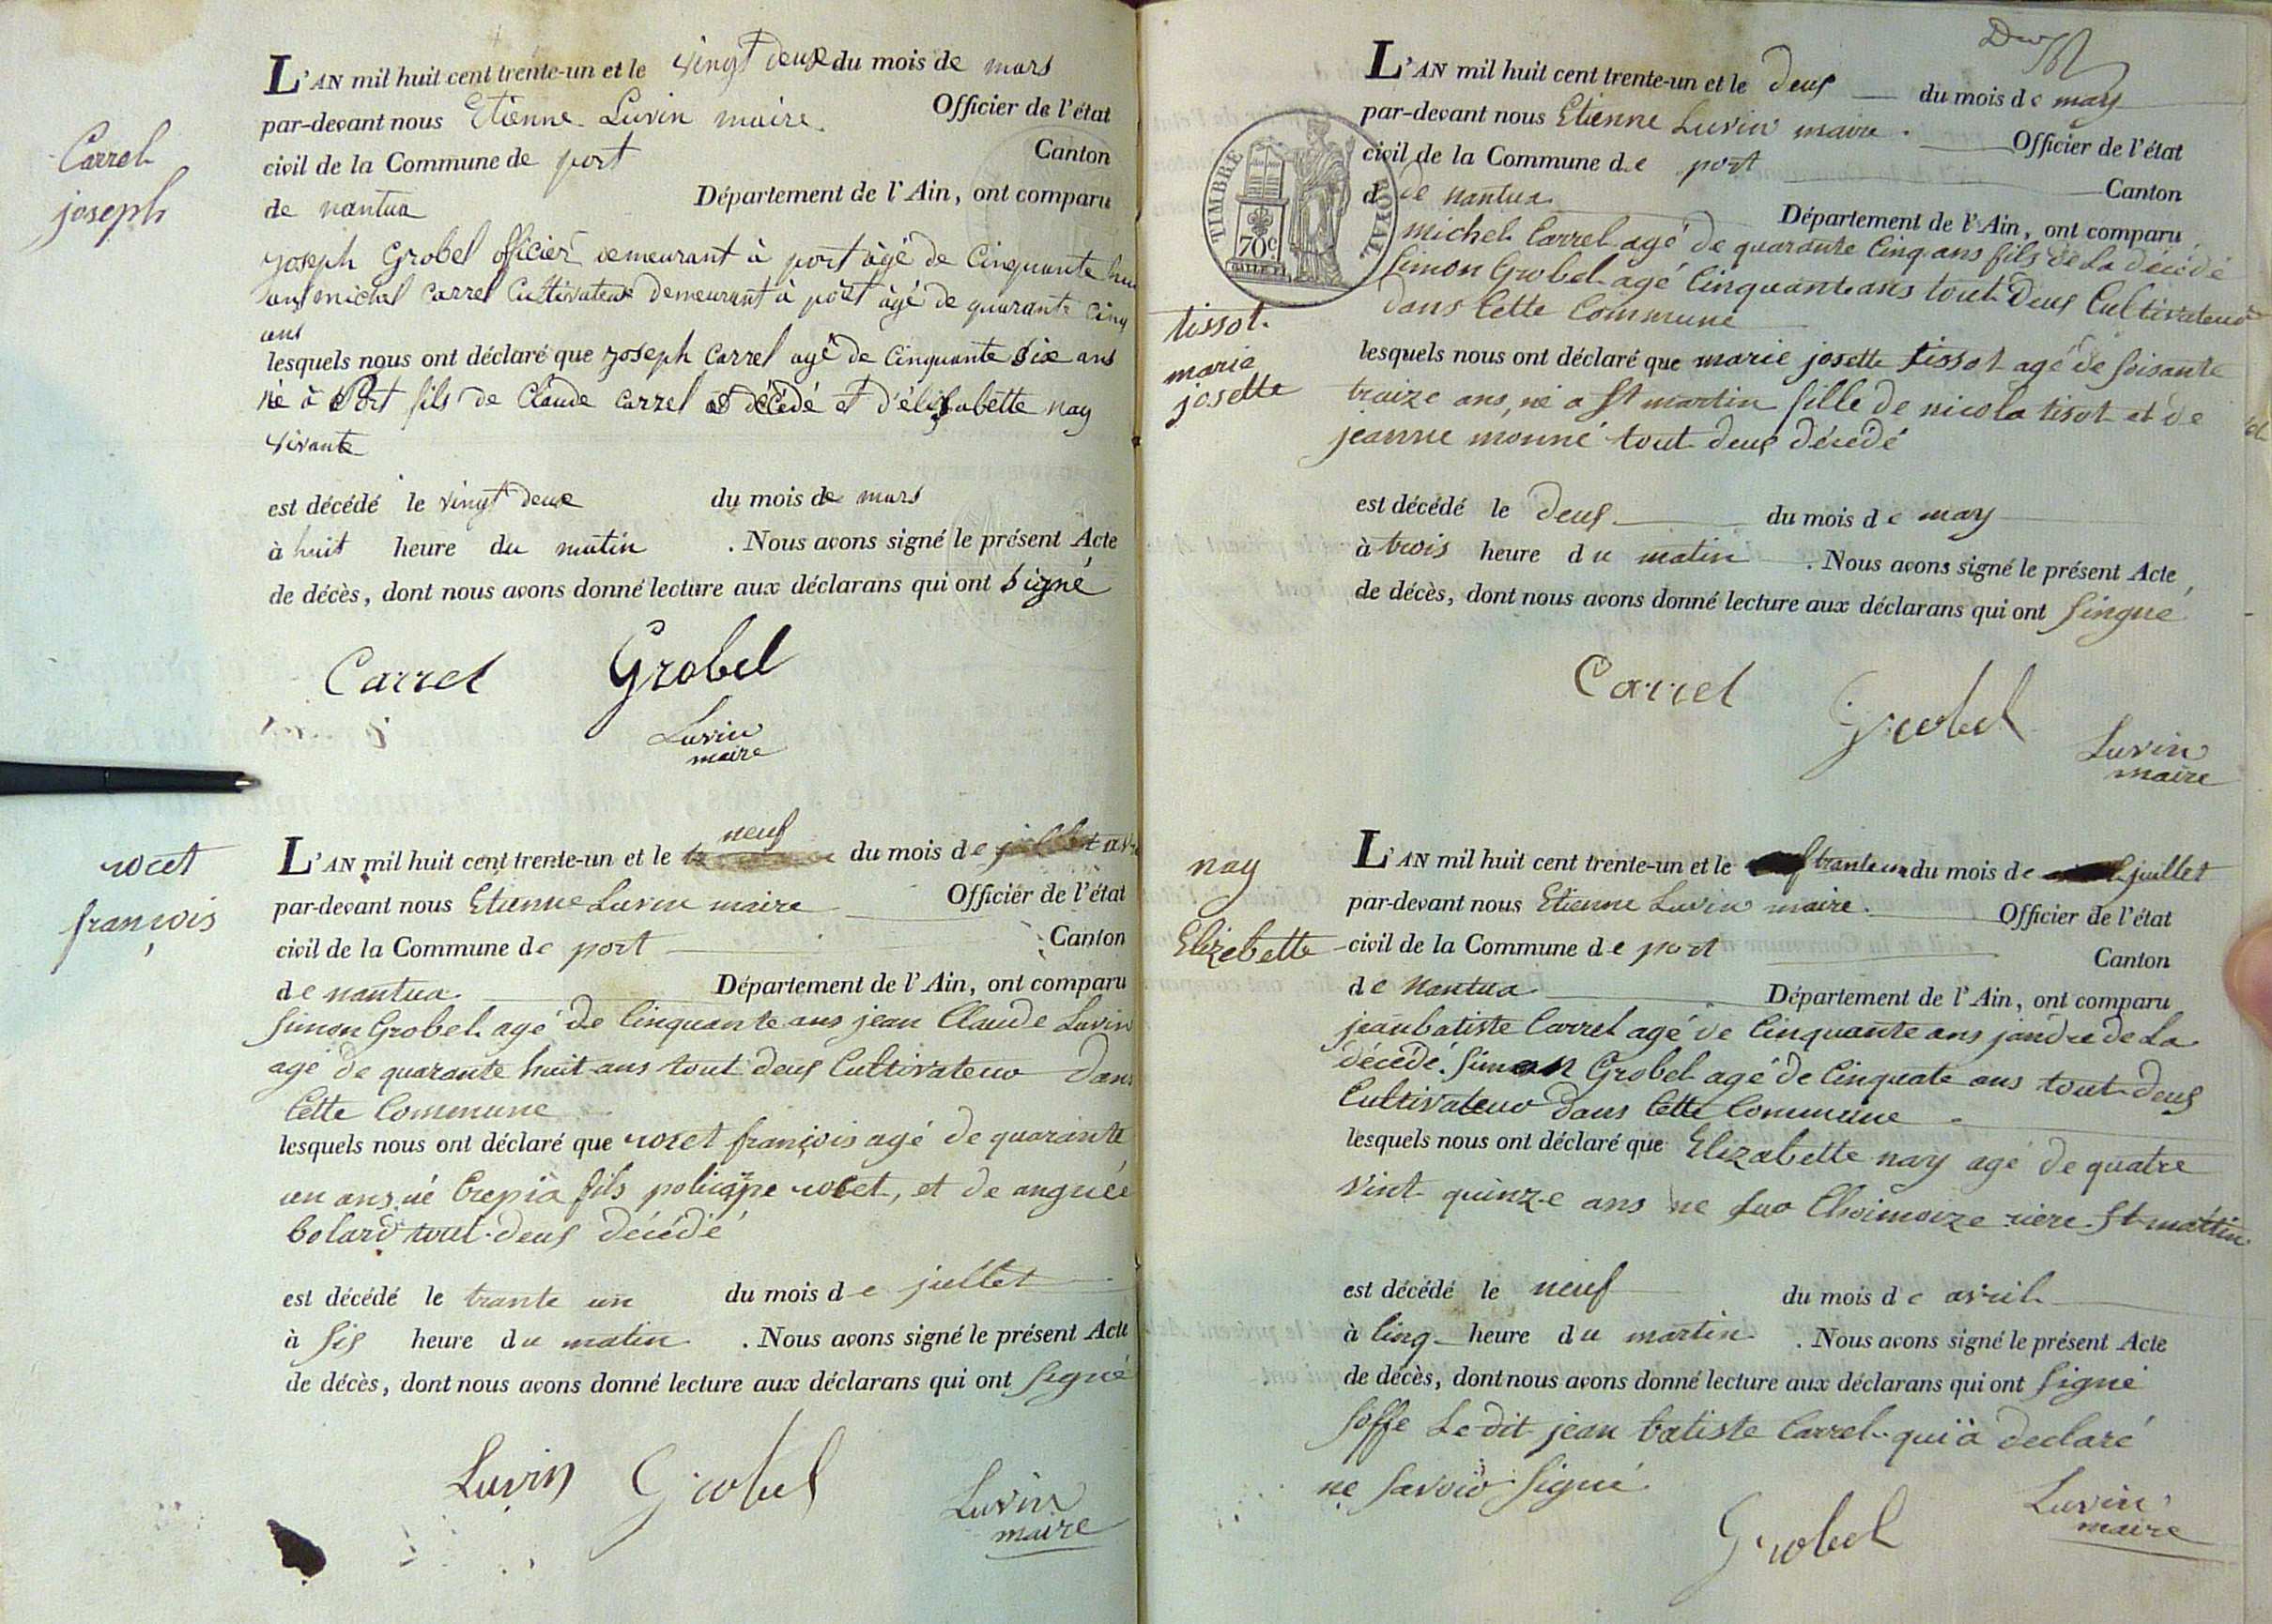 Carrel
joseph
L'AN mil huit cent trente-un et le vingt deux du mois de mars
par-devant nous Etienne Luvin maire. Officier de l'état
civil de la Commune de port Canton
de nantua Département de l'Ain, ont comparu
joseph Grobel officier demeurant à port âgé de Cinquante
ans michel Carrel Cultivateur demeurant à port âgé de quarante cinq
ans
lesquels nous ont déclaré que joseph Carrel agé de Cinquante Six ans
né à Port fils de Claude Carrel décédé et d'élisabette nay
vivante
est décédé le vingt deux du mois de mars
à huit heure du matin . Nous avons signé le présent Acte
de décès, dont nous avons donné lecture aux déclarans qui ont Signé
Carrel Grobel
Luvin
maire
rocet
françois
neuf
L'AN mil huit cent trente-un et le du mois de
par-devant nous Etienne Luvin maire Officier de l'état
civil de la Commune de port Canton
de nantua Département de l'Ain, ont comparu
Simon Grobel agé de Cinquante ans jean Claude Luvin
agé de quarante huit ans tout deus Cultivateur dans
Cette Commune
lesquels nous ont déclaré que rocet françois agé de quarante
un ans né Crepia fils policarpe rocet, et de
bolard tout deus décédé
est décédé le trante un du mois de juillet
à sis heure du matin . Nous avons signé le présent Acte
de décès, dont nous avons donné lecture aux déclarans qui ont signé
Luvin Grobel
Luvin
maire
L'AN mil huit cent trente-un et le deus du mois de may
par-devant nous Etienne Luvin maire. Officier de l'état
civil de la Commune de port Canton
d de nantua Département de l'Ain, ont comparu
TIMBRE ROYAL
70c
michel Carrel agé de quarante Cinq ans fils de La décédé
Simon Grobel agé Cinquante ans tout deus Cultivateur
dans Cette Commune
tissot
marie
josette
lesquels nous ont déclaré que marie josette tissot agé de soisante
traize ans, né a St martin fille de nicola tisot et de
jeanne monné tout deus décédé
est décédé le deus du mois de may
à trois heure du matin . Nous avons signé le présent Acte
de décès, dont nous avons donné lecture aux déclarans qui ont singué
Carrel
Grobel
Luvin
maire
nay
Elizebette
L'AN mil huit cent trente-un et le tranteun du mois de juillet
par-devant nous Etienne Luvin maire. Officier de l'état
civil de la Commune de port Canton
de Nantua Département de l'Ain, ont comparu
jean batiste Carrel agé de Cinquante ans jandre de La
décédé. Simon Grobel agé de Cinquate ans tout deus
Cultivateur dans Cette Commune
lesquels nous ont déclaré que Elizabette nay agé de quatre
vint quinze ans ne sur Choimoize riere St martin
est décédé le neuf du mois de avril
à Cinq heure du martin . Nous avons signé le présent Acte
de décès, dont nous avons donné lecture aux déclarans qui ont signé
soffe Le dit jean batiste Carrel qui a declaré
ne savoir signé
Grobel
Luvin
maire